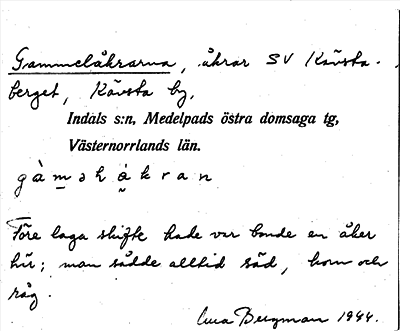 Gammelåkrarna, åkrar SV Kävsta-
berget, Kävsta by,
Indals s:n, Medelpads östra domsaga tg,
Västernorrlands län.
gàməlåkran
Före laga skifte hade var bonde en åker
här; man sådde alltid säd, korn och
råg.
Bergman 1944.